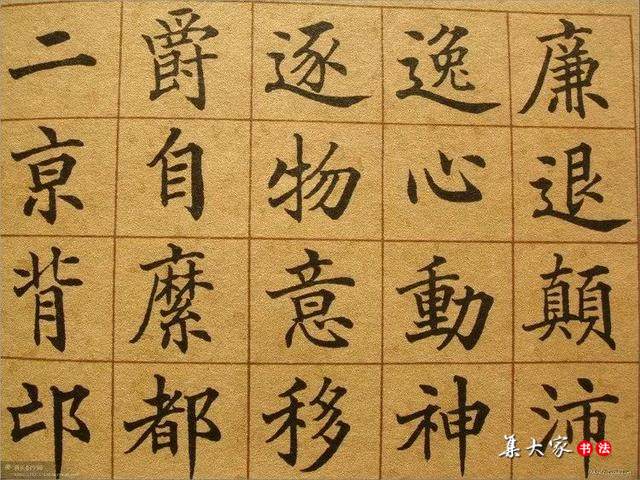 廉退顛沛
逸心動神
逐物意移
爵自縻都
二亰背邙
集大家书法